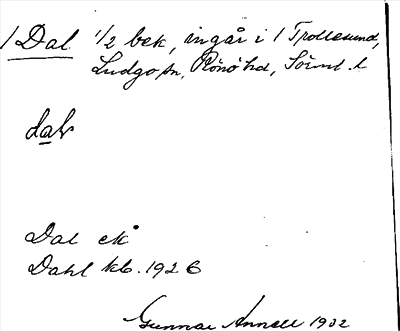 1 Dal 1/2 bek, ingår i 1 Trollesund,
Ludgo sn, Rönö hd, Sörml. l
dal
Dal ek
Dahl kb. 1926
Gunnar Annell 1932